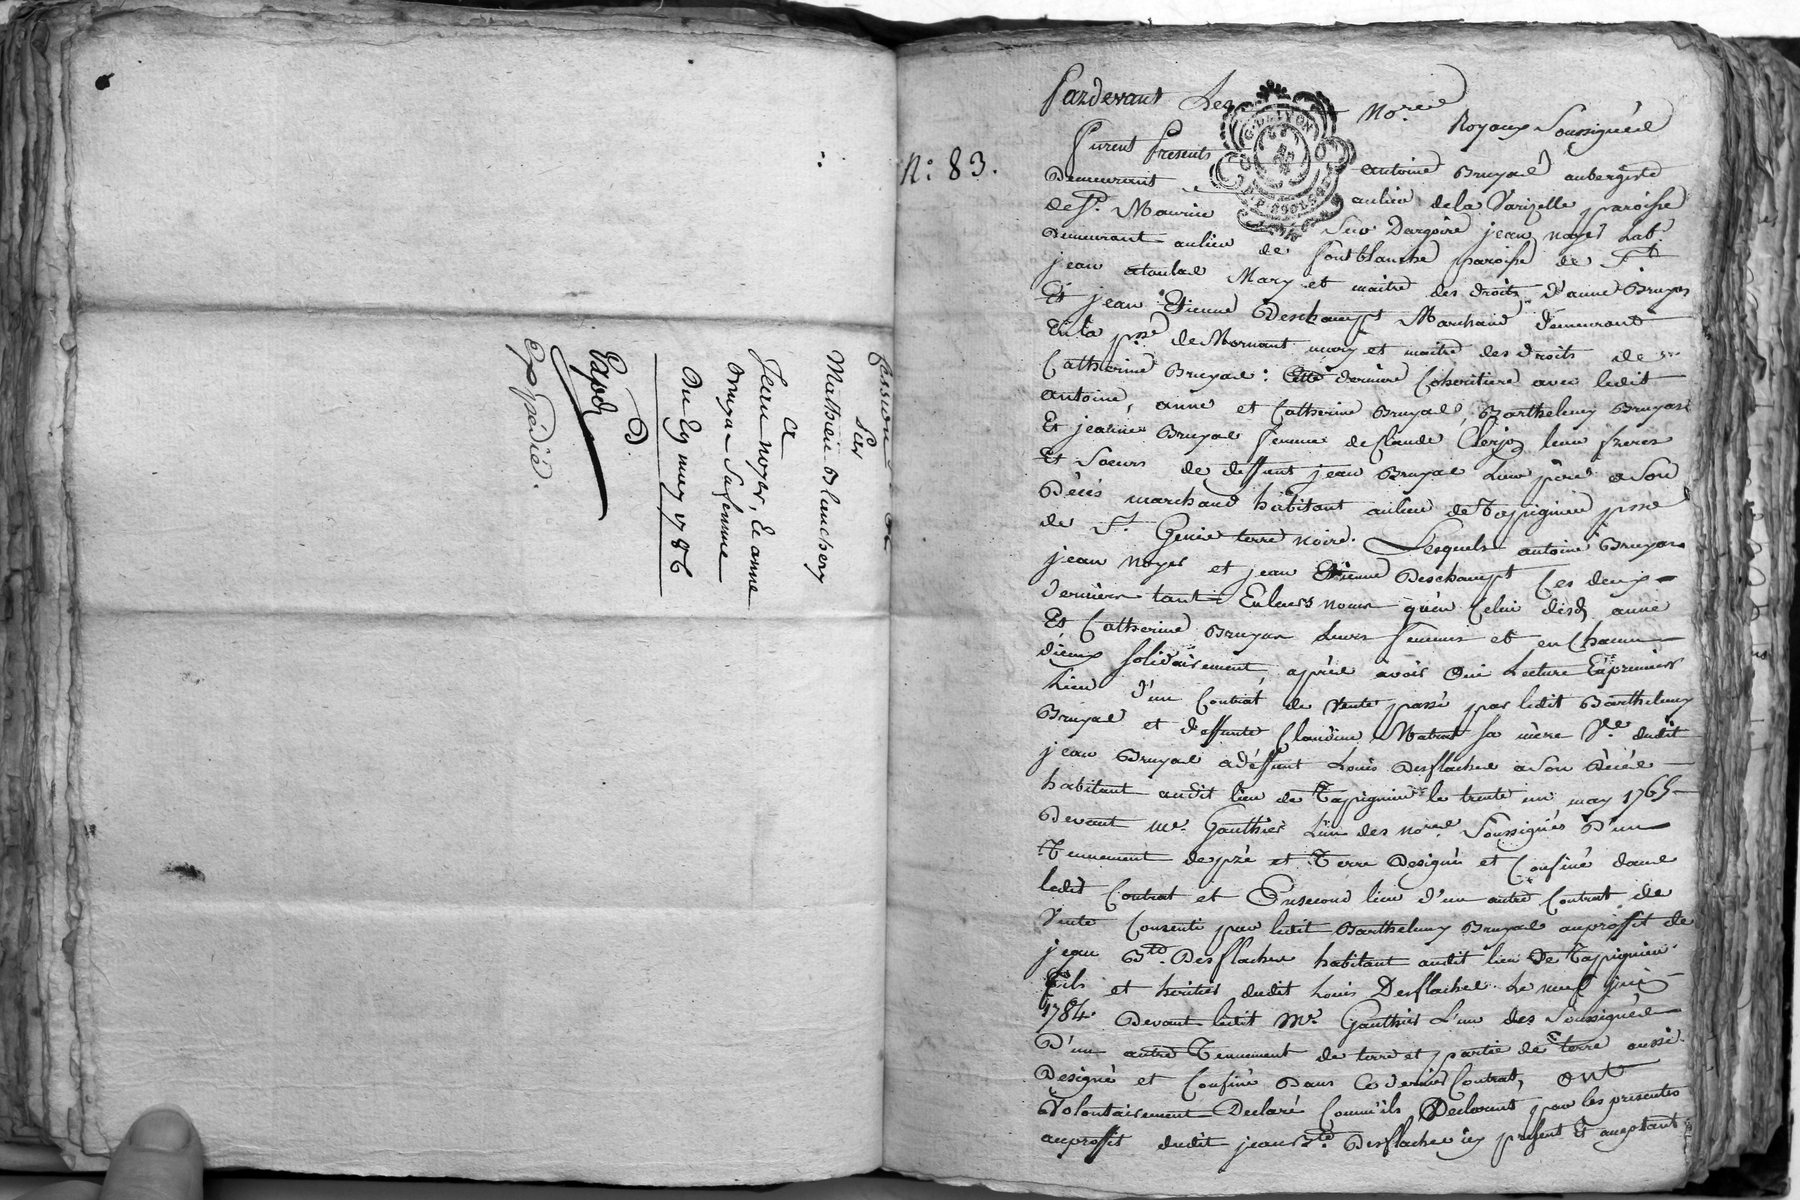 Cession
Sur
Mathieu Blanchery
a
Jean noyer, & anne
Bruyas Sa femme
Du 29 may 1786
D.
Papd
Expédié.
N: 83.
Pardevant Les No.res Royaux Soussignéd
G. DE LYON
Furent Presents antoine Bruyas aubergiste
Demeurant aulieu de la Varizelle paroisse
de St. Maurice Sur Dargoire jean noyer Lab.
demeurant aulieu de fontblanche paroisse de St
jean atoulas Mary et maitre des droits d'anne Bruyas
Et jean Etienne Deschampt Marchand demeurant
En la psse de Mornant mary et maitre des droits de
Catherine Bruyas: Cette derniere Coheritiere avec ledit
antoine, anne et Catherine Bruyas, Barthelemy Bruyas
Et jeanne Bruyas femme de Claude Clerjon leur freres
Et Soeurs de deffunt jean Bruyas Leur père a Son
Décés marchand habitant aulieu de Tapignieu psse
de St. Genis terre noire. Lesquels antoine Bruyas
jean Noyer et jean Etienne Deschampt Ces deux
derniers tant En leurs noms qu'en Celui desd anne
Et Catherine Bruyas Leurs femmes et en Chacun
d'ieux solidairement, après avoir Oui Lecture En premier
Lieu d'un Contrat de Vente passé par ledit Barthelemy
Bruyas et deffunte Claudine sa mère Ve. dudit
jean Bruyas a deffunt Louis Desflaches a Son Décés
habitant audit lieu de Tapignieu le trente un may 1765
Devant Me. Gauthier L'un des nores Soussignés D'un
Tennement de pré et Terre Designé et Confiné dans
ledit Contrat et En second lieu d'un autre Contrat de
Vente Consenti par ledit Barthelemy Bruyas au proffit de
jean Bte. Desflaches habitant audit lieu De Tapignieu
fils et heritier dudit Louis Desflaches Le neuf juin
1784. Devant ledit Me. Gauthier L'un des Soussignés
D'un autre Tennement de terre et partie de terre aussi
Designé et Confiné Dans Ce dernier Contrat, ont
Volontairement Declaré Comm'ils Declarent par les presentes
au proffit dudit jean Bte. Desflaches icy present Et acceptant